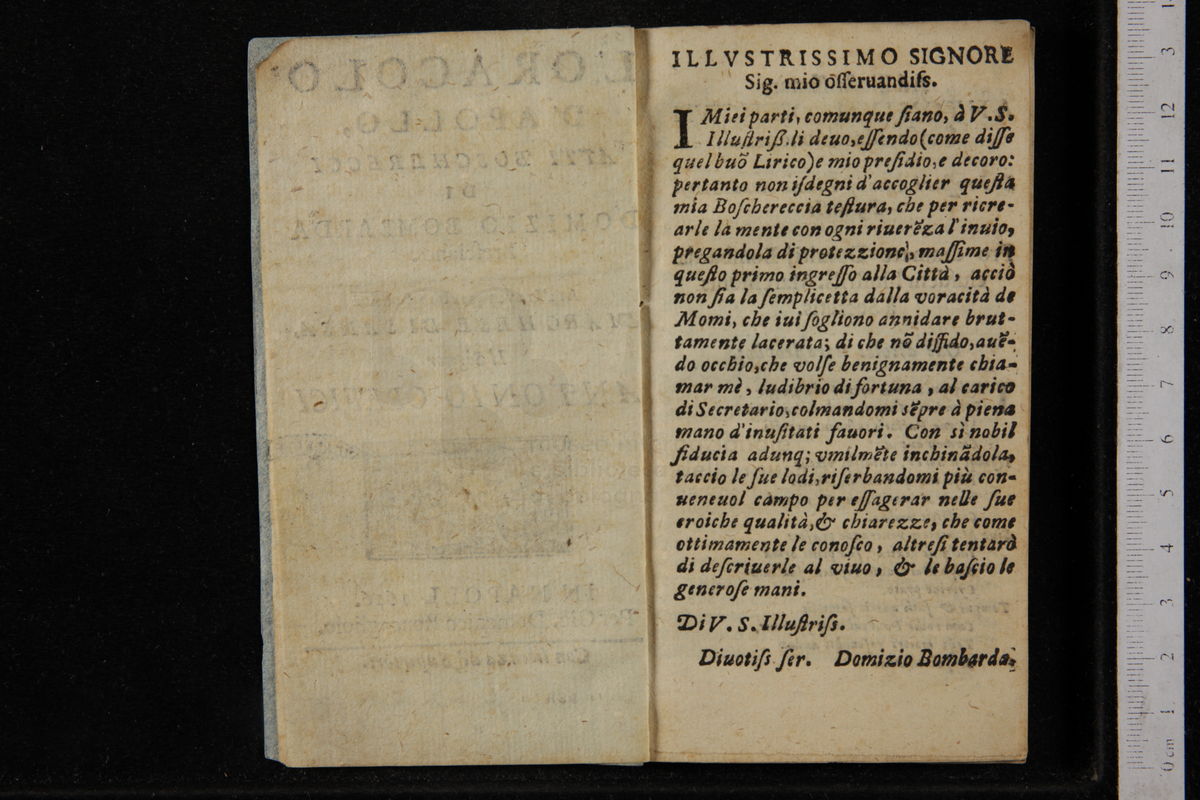 ILLVSTRISSIMO SIGNORE
Sig. mio ossẽruandiss.
I Miei parti, comunque siano, à V.S.
Illustriß.li deuo,essendo(come disse
quel buõ Lirico)e mio presidio,e decoro:
pertanto non isdegni d'accoglier questa
mia Boschereccia testura, che per ricre-
arle la mente con ogni riuerẽza l'inuio,
pregandola di protezzione, massime in
questo primo ingresso alla Città, acciò
non sia la semplicetta dalla voracità de
Momi, che iui sogliono annidare brut-
tamente lacerata; di che nõ diffido,auẽ-
do occhio,che volse benignamente chia-
mar mè, ludibrio di fortuna, al carico
di Secretario,colmandomi sẽpre à piena
mano d'inusitati fauori. Con sì nobil
fiducia adunq; vmilmẽte inchinãdola,
taccio le sue lodi,riserbandomi più con-
ueneuol campo per essagerar nelle sue
eroiche qualità,& chiarezze, che come
ottimamente le conosco, altresi tentarò
di descriuerle al viuo, & le bascio le
generose mani.
Di V. S. Illustriss.
Diuotiss ser. Domizio Bombarda.